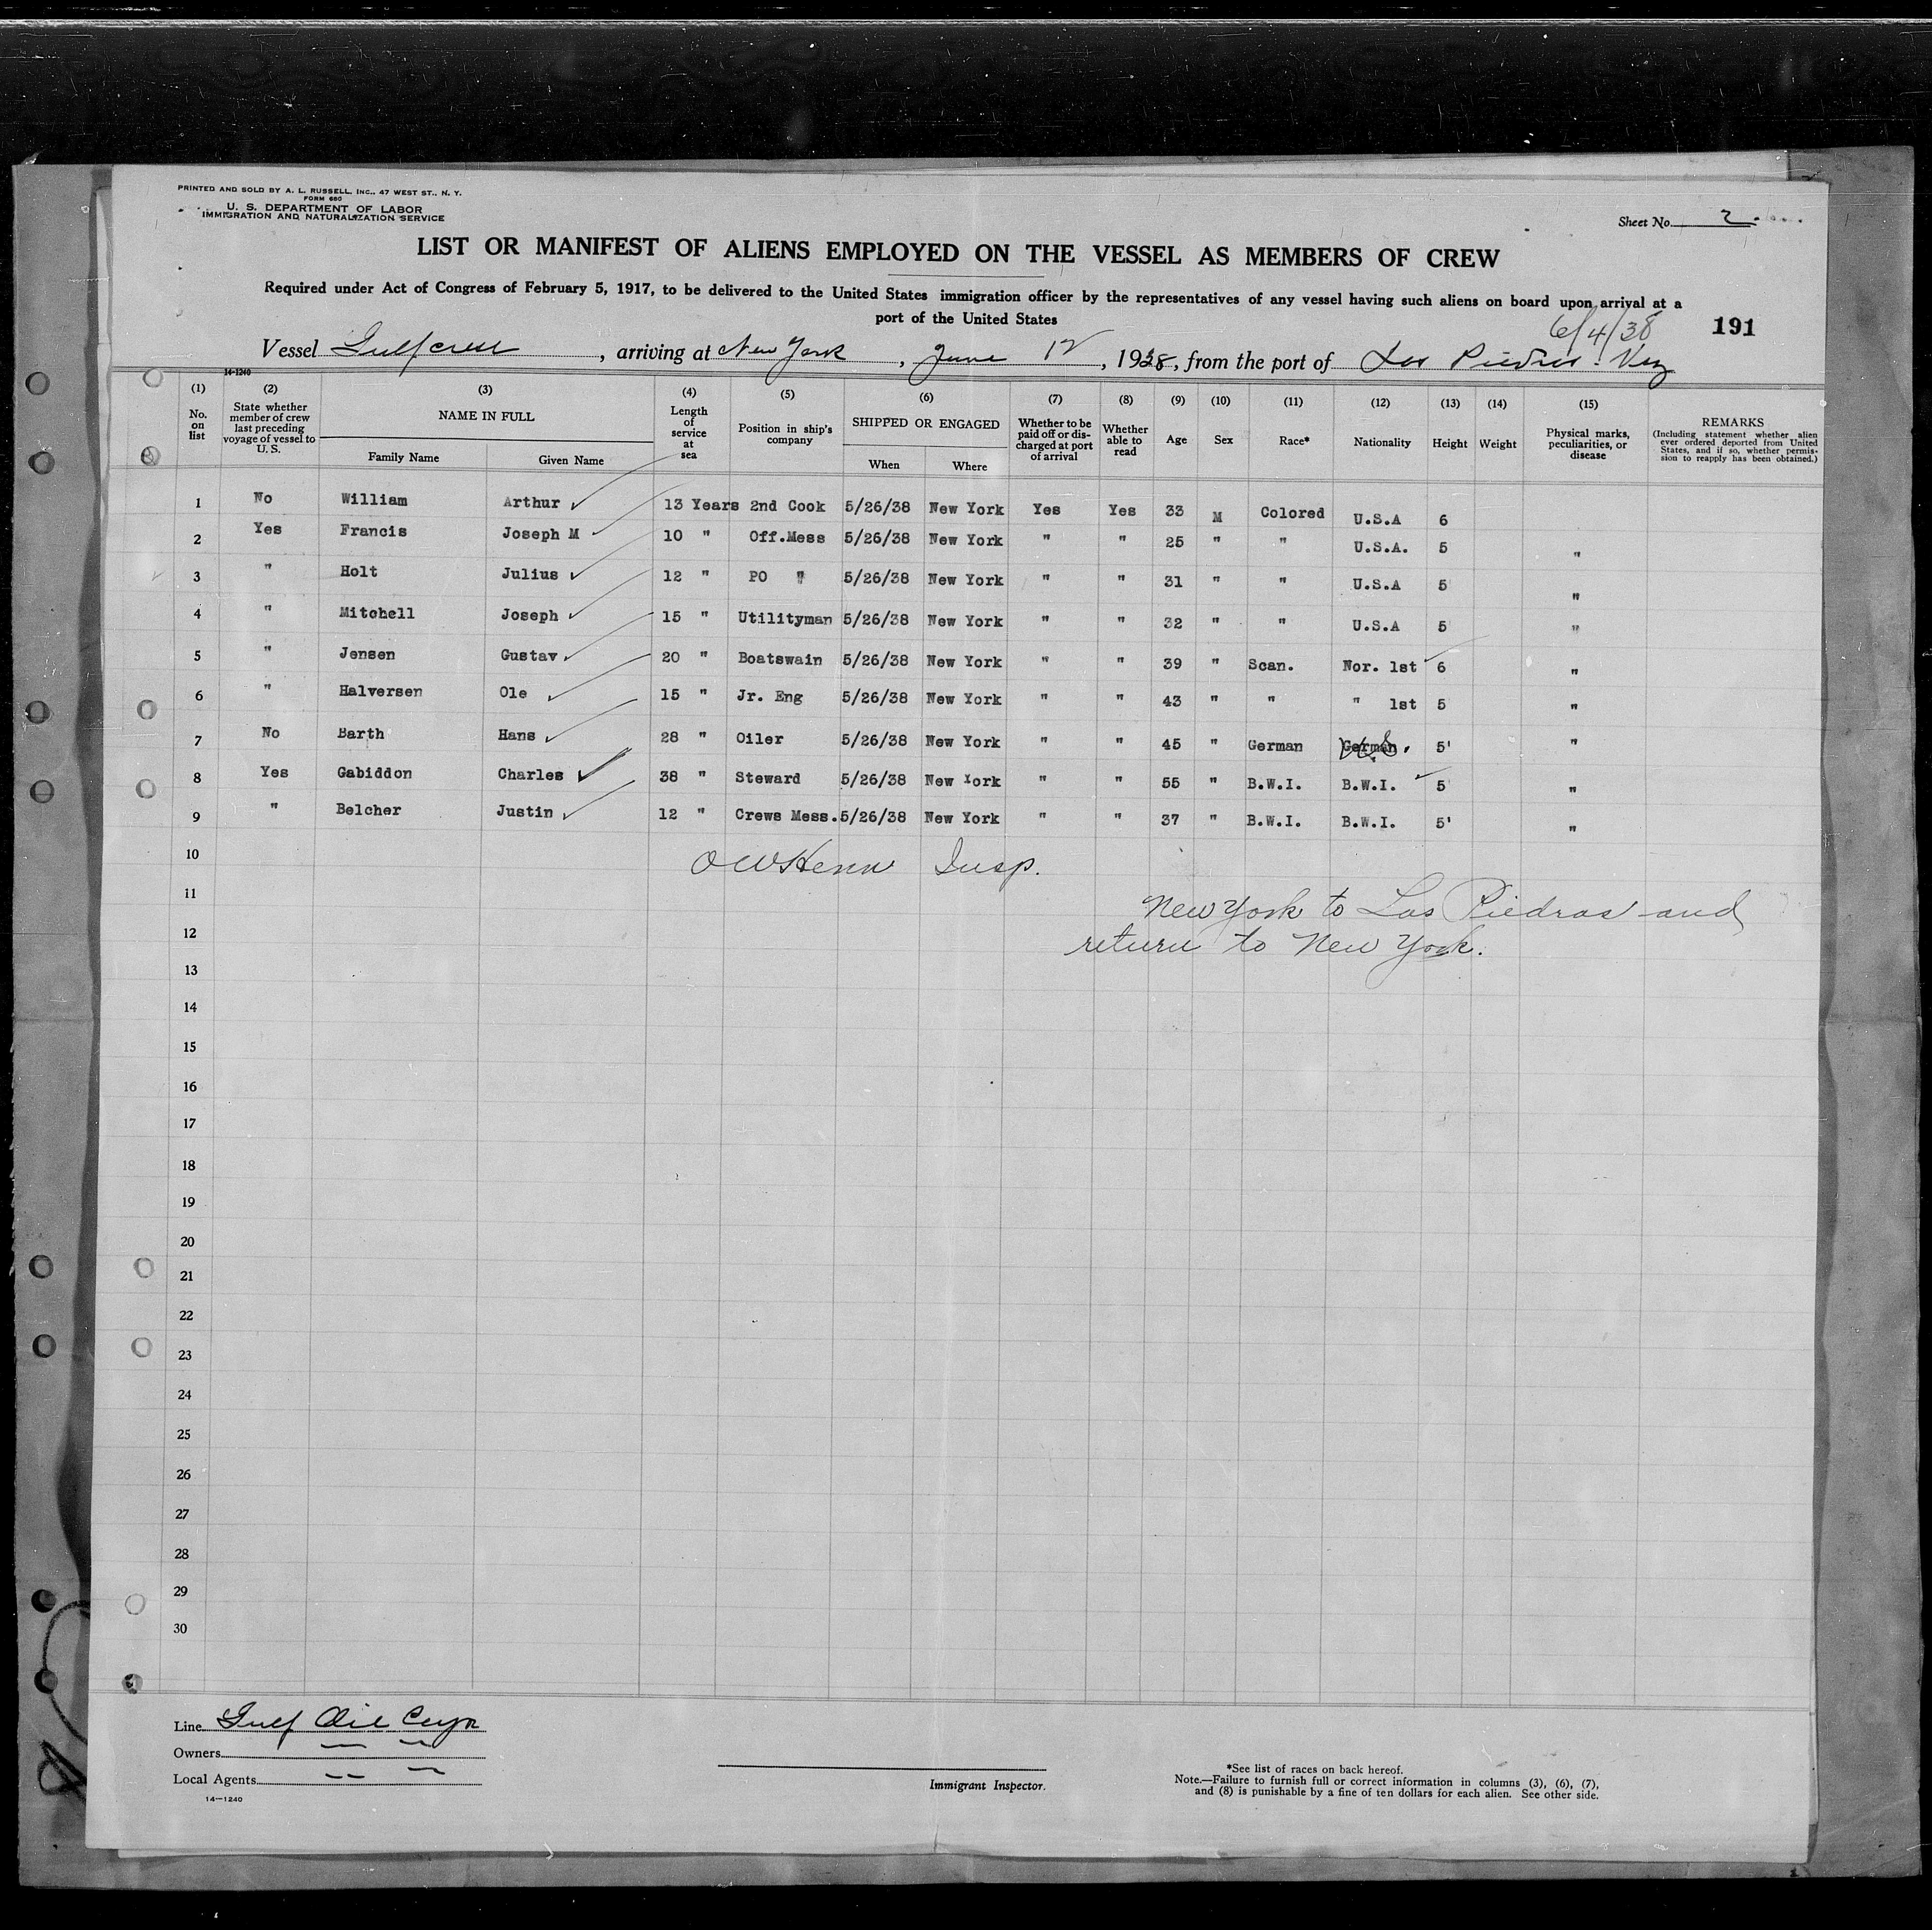 PRINTED AND SOLD BY A. L. RUSSELL, INC., 47 WEST ST., N. Y.
FORM 680
U. S. DEPARTMENT OF LABOR
IMMIGRATION AND NATURALIZATION SERVICE
Sheet No. 2
LIST OR MANIFEST OF ALIENS EMPLOYED ON THE VESSEL AS MEMBERS OF CREW
Required under Act of Congress of February 5, 1917, to be delivered to the United States immigration officer by the representatives of any vessel having such aliens on board upon arrival at a
port of the United States
6/4/38 191
Vessel Gulfcrest, arriving at New York, June 12, 1938, from the port of Las Piedras. Ven
14-1240
(1) (2) (3) (4) (5) (6) (7) (8) (9) (10) (11) (12) (13) (14) (15)
No. on list
State whether member of crew last preceding voyage of vessel to U. S.
NAME IN FULL
Family Name Given Name
Length of service at sea
Position in ship's company
SHIPPED OR ENGAGED
When Where
Whether to be paid off or discharged at port of arrival
Whether able to read
Age
Sex
Race*
Nationality
Height
Weight
Physical marks, peculiarities, or disease
REMARKS
(Including statement whether alien ever ordered deported from United States, and if so, whether permission to reapply has been obtained.)
1 No William Arthur 13 Years 2nd Cook 5/26/38 New York Yes Yes 33 M Colored U.S.A 6
2 Yes Francis Joseph M 10 " Off.Mess 5/26/38 New York " " 25 " " U.S.A. 5 "
3 " Holt Julius 12 " PO " 5/26/38 New York " " 31 " " U.S.A 5 "
4 " Mitchell Joseph 15 " Utilityman 5/26/38 New York " " 32 " " U.S.A 5 "
5 " Jensen Gustav 20 " Boatswain 5/26/38 New York " " 39 " Scan. Nor. 1st 6 "
6 " Halversen Ole 15 " Jr. Eng 5/26/38 New York " " 43 " " " 1st 5 "
7 No Barth Hans 28 " Oiler 5/26/38 New York " " 45 " German German U.S. 5' "
8 Yes Gabiddon Charles 38 " Steward 5/26/38 New York " " 55 " B.W.I. B.W.I. 5 "
9 " Belcher Justin 12 " Crews Mess. 5/26/38 New York " " 37 " B.W.I. B.W.I. 5' "
10 Insp.
11 New York to Las Piedras and
12 return to New York.
13
14
15
16
17
18
19
20
21
22
23
24
25
26
27
28
29
30
Line Gulf Oil Corp
Owners " "
Local Agents " "
14—1240
Immigrant Inspector.
*See list of races on back hereof.
Note.—Failure to furnish full or correct information in columns (3), (6), (7),
and (8) is punishable by a fine of ten dollars for each alien. See other side.